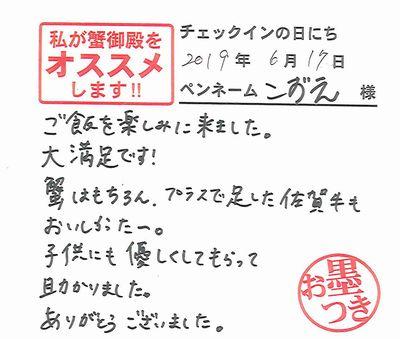 私が蟹御殿を
オススメ
します!!
チェックインの日にち
2019年 6月 17日
ペンネーム こずえ 様
ご飯を楽しみに来ました。
大満足です!
蟹はもちろん、プラスで足した佐賀牛も
おいしかったー。
子供にも優しくしてもらって
助かりました。
ありがとうございました。
お墨つき